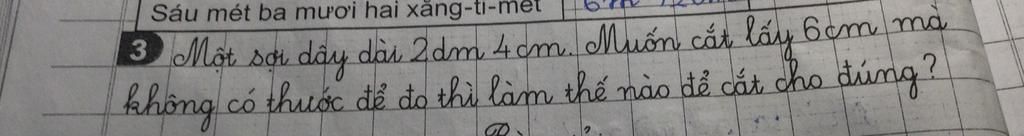 Sáu mét ba mươi hai xăng-ti-mét
3 Một sợi dây dài 2dm 4cm. Muốn cắt lấy 6cm mà
không có thước để đo thì làm thế nào để cắt cho đúng?